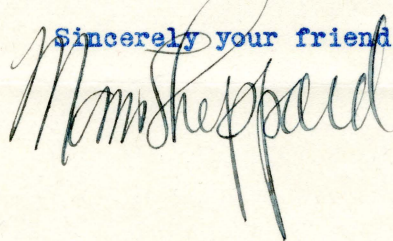 Sincerely your friend
Morris Sheppard